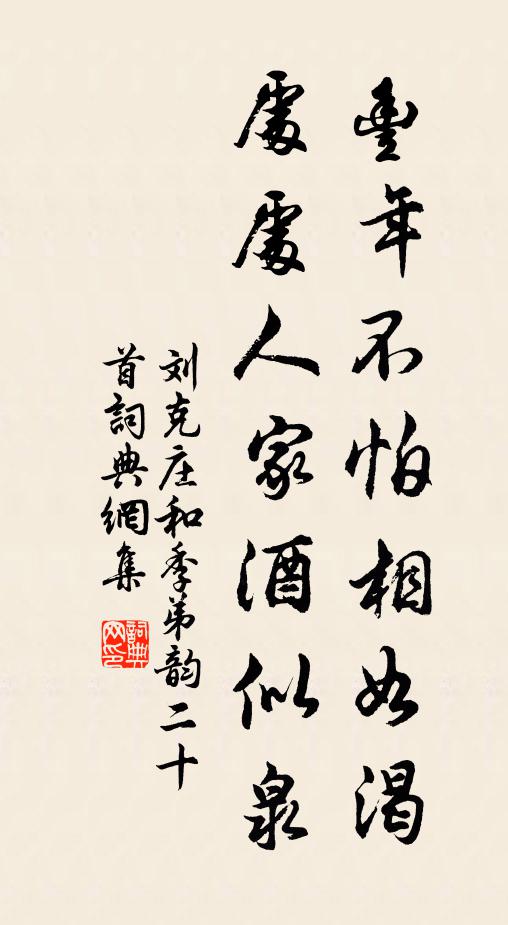 豐年不怕相如渴
處處人家酒似泉
刘克庄和季弟韵二十
首詞典網集
詞典
网印